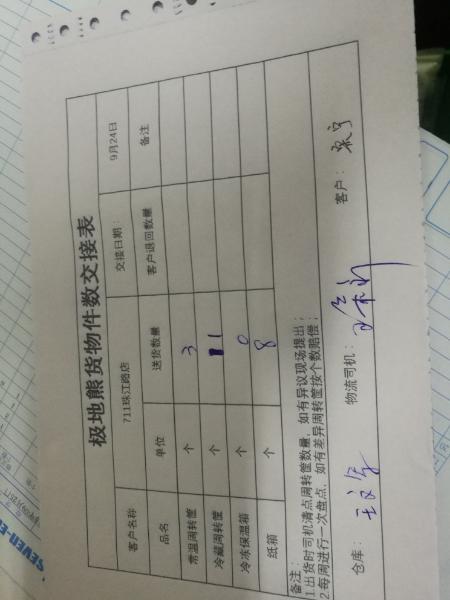 极地熊货物件数交接表
客户名称 711珠江路店 交接日期： 9月24日
品名 单位 送货数量 客户退回数量 备注
常温周转筐 个 3
冷藏周转筐 个 11
冷冻保温箱 个 0
纸箱 个 8
备注：
1.出货时司机清点周转筐数量，如有异议现场提出；
2.每周进行一次盘点，如有差异周转筐按个数赔偿；
仓库： 物流司机： 客户：
SEVEN-E